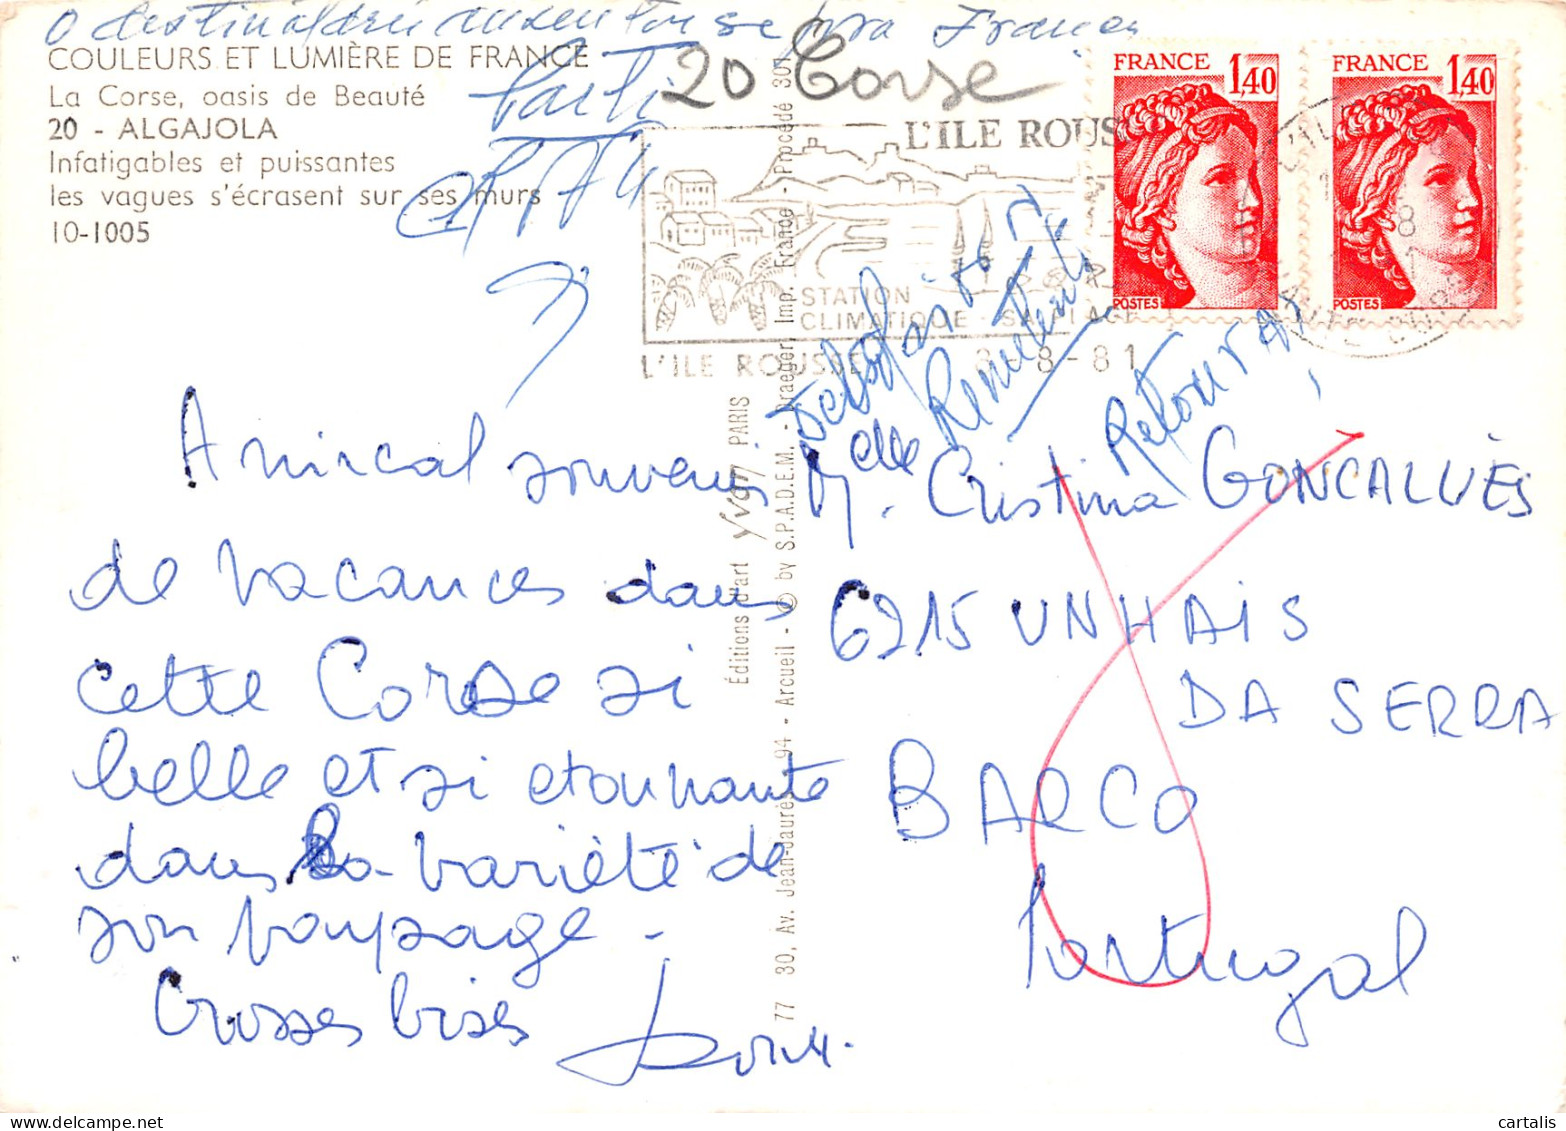 O destinatário ausentou-se para França
COULEURS ET LUMIÈRE DE FRANCE
La Corse, oasis de Beauté
20 - ALGAJOLA
Infatigables et puissantes
les vagues s'écrasent sur ses murs
10-1005
Parti
20 Corse
FRANCE 1,40
POSTES
FRANCE 1,40
POSTES
L'ILE ROUS
STATION
CLIMATIQUE -
L'ILE ROUSSE
8-8-81
Retour
Amical souvenir
de vacances dans
cette Corse si
belle et si etonnante
dans la variété de
son paysage -
Grosses bises
Éditions d'art Yvon PARIS
77 30, Av. Jean-Jaurès 94 - Arcueil - © by S.P.A.D.E.M. - Draeger, Imp. France - Procédé 301
M. Cristina GONCALVÈS
6215 UNHAIS
DA SERRA
BARCO
Portugal